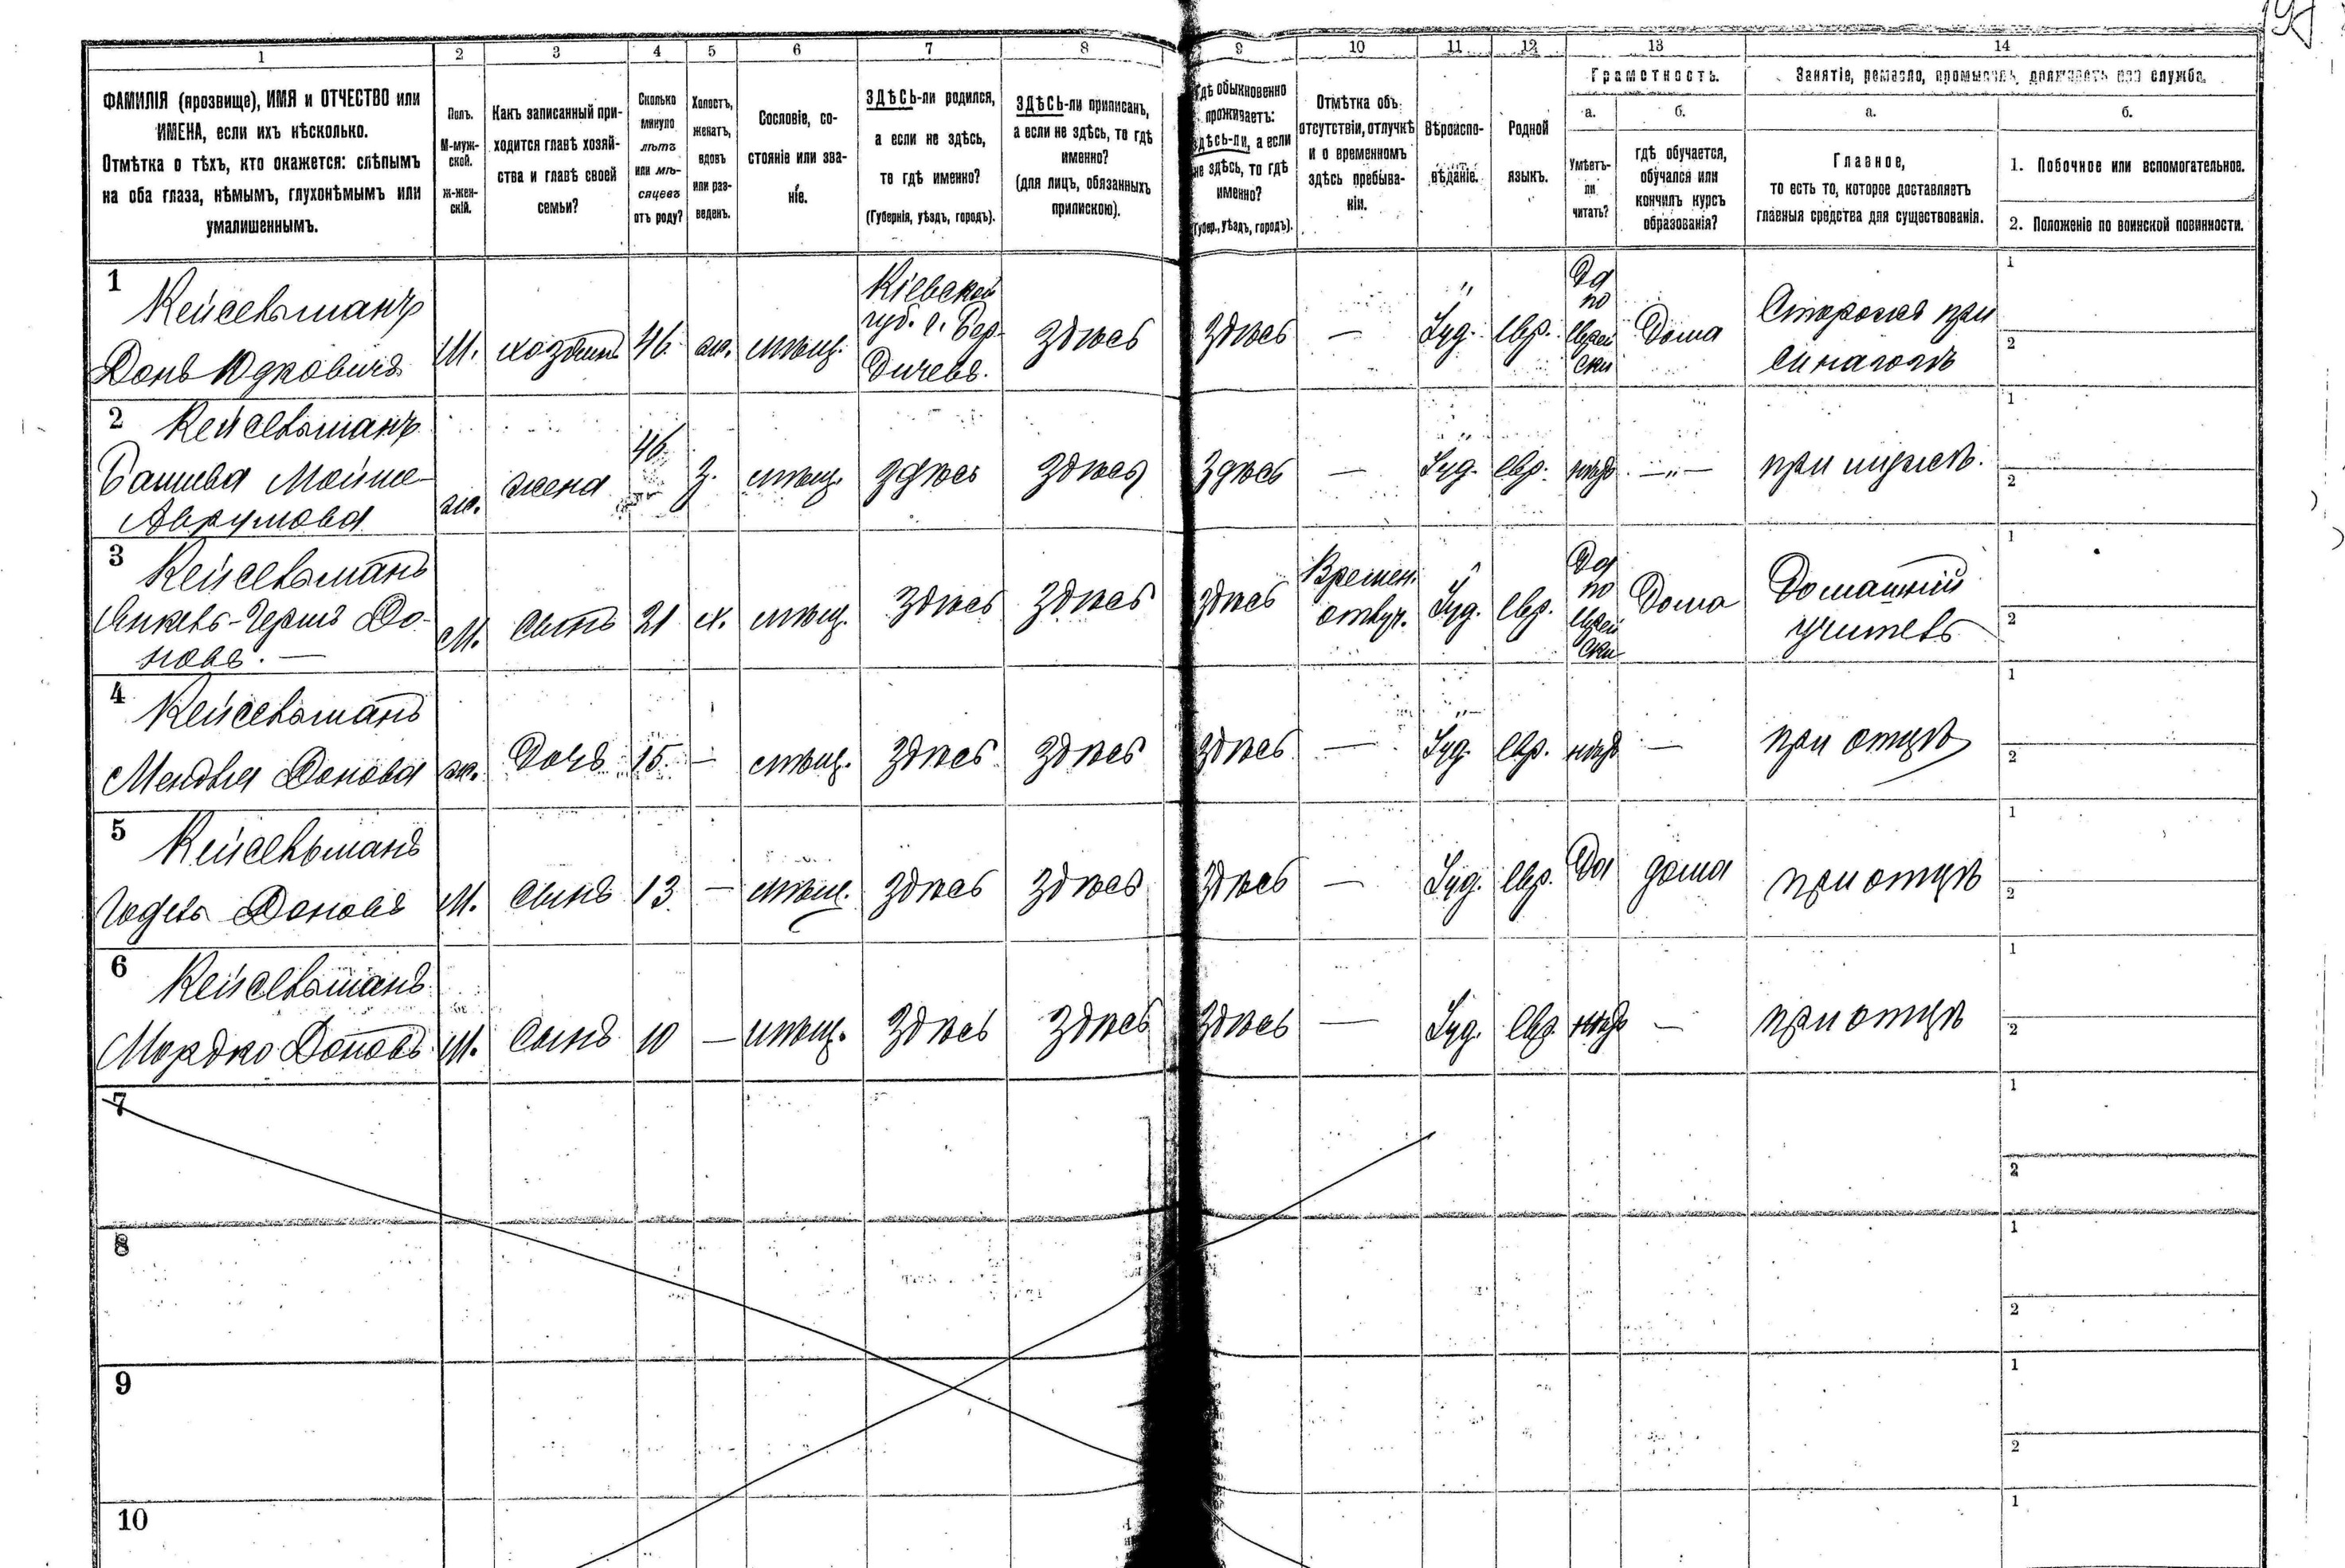 197
1 2 3 4 5 6 7 8 9 10 11 12 13 14
ФАМИЛІЯ (прозвище), ИМЯ и ОТЧЕСТВО или
ИМЕНА, если ихъ нѣсколько.
Отмѣтка о тѣхъ, кто окажется: слѣпымъ
на оба глаза, нѣмымъ, глухонѣмымъ или
умалишеннымъ.
Полъ.
М-муж-
ской.
ж-жен-
скій.
Какъ записанный при-
ходится главѣ хозяй-
ства и главѣ своей
семьи?
Сколько
минуло
лѣтъ
или мѣ-
сяцевъ
отъ роду?
Холостъ,
женатъ,
вдовъ
или раз-
веденъ.
Сословіе, со-
стояніе или зва-
ніе.
ЗДѢСЬ-ли родился,
а если не здѣсь,
то гдѣ именно?
(Губернія, уѣздъ, городъ).
ЗДѢСЬ-ли приписанъ,
а если не здѣсь, то гдѣ
именно?
(для лицъ, обязанныхъ
припискою).
Гдѣ обыкновенно
проживаетъ:
здѣсь-ли, а если
не здѣсь, то гдѣ
именно?
(Губер., уѣздъ, городъ).
Отмѣтка объ
отсутствіи, отлучкѣ
и о временномъ
здѣсь пребыва-
ніи.
Вѣроиспо-
вѣданіе.
Родной
языкъ.
Грамотность.
а.
Умѣетъ-
ли
читать?
б.
гдѣ обучается,
обучался или
кончилъ курсъ
образованія?
Занятіе, ремесло, промыселъ, должность или служба.
а.
Главное,
то есть то, которое доставляетъ
главныя средства для существованія.
б.
1. Побочное или вспомогательное.
2. Положеніе по воинской повинности.
1
Кейсельманъ
Донь Юдковичъ
М. хозяинъ 46. ж. мѣщ.
Кіевской
губ. г. Бер-
дичевъ.
здѣсь здѣсь — Іуд. евр.
Да
по
еврей
ски
Дома
Сторожъ при
синагогѣ
1
2
2
Кейсельманъ
Башева Мойше-
Аврумова
ж. жена 46 з. мѣщ. здѣсь здѣсь здѣсь — Іуд. евр. нѣтъ —„— при мужѣ.
1
2
3
Кейсельманъ
Янкель-Гершъ До-
новъ. —
М. Сынъ 21 х. мѣщ. здѣсь здѣсь здѣсь
Времен.
отлуч.
Іуд. евр.
Да
по
еврей
ски
Дома
Домашній
учитель
1
2
4
Кейсельманъ
Мендля Донова
ж. Дочь 15. — мѣщ. здѣсь здѣсь здѣсь — Іуд. евр. нѣтъ — при отцѣ
1
2
5
Кейсельманъ
Годель Доновъ
М. сынъ 13. — мѣщ. здѣсь здѣсь здѣсь — Іуд. евр. Да дома при отцѣ
1
2
6
Кейсельманъ
Мордко Доновъ
М. Сынъ 10 — мѣщ. здѣсь здѣсь здѣсь — Іуд. евр. нѣтъ — при отцѣ
1
2
7
1
2
8
1
2
9
1
2
10
1